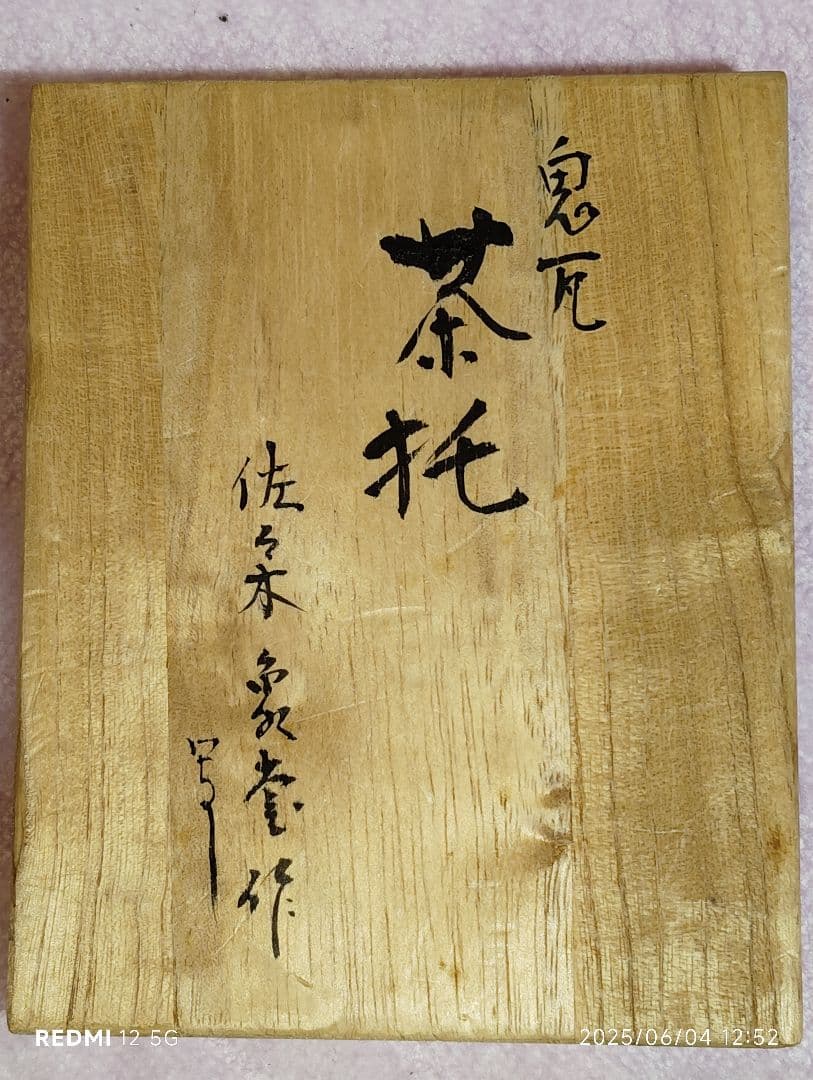 鬼瓦
茶托
佐々木象堂作
REDMI 12 5G
2025/06/04 12:52